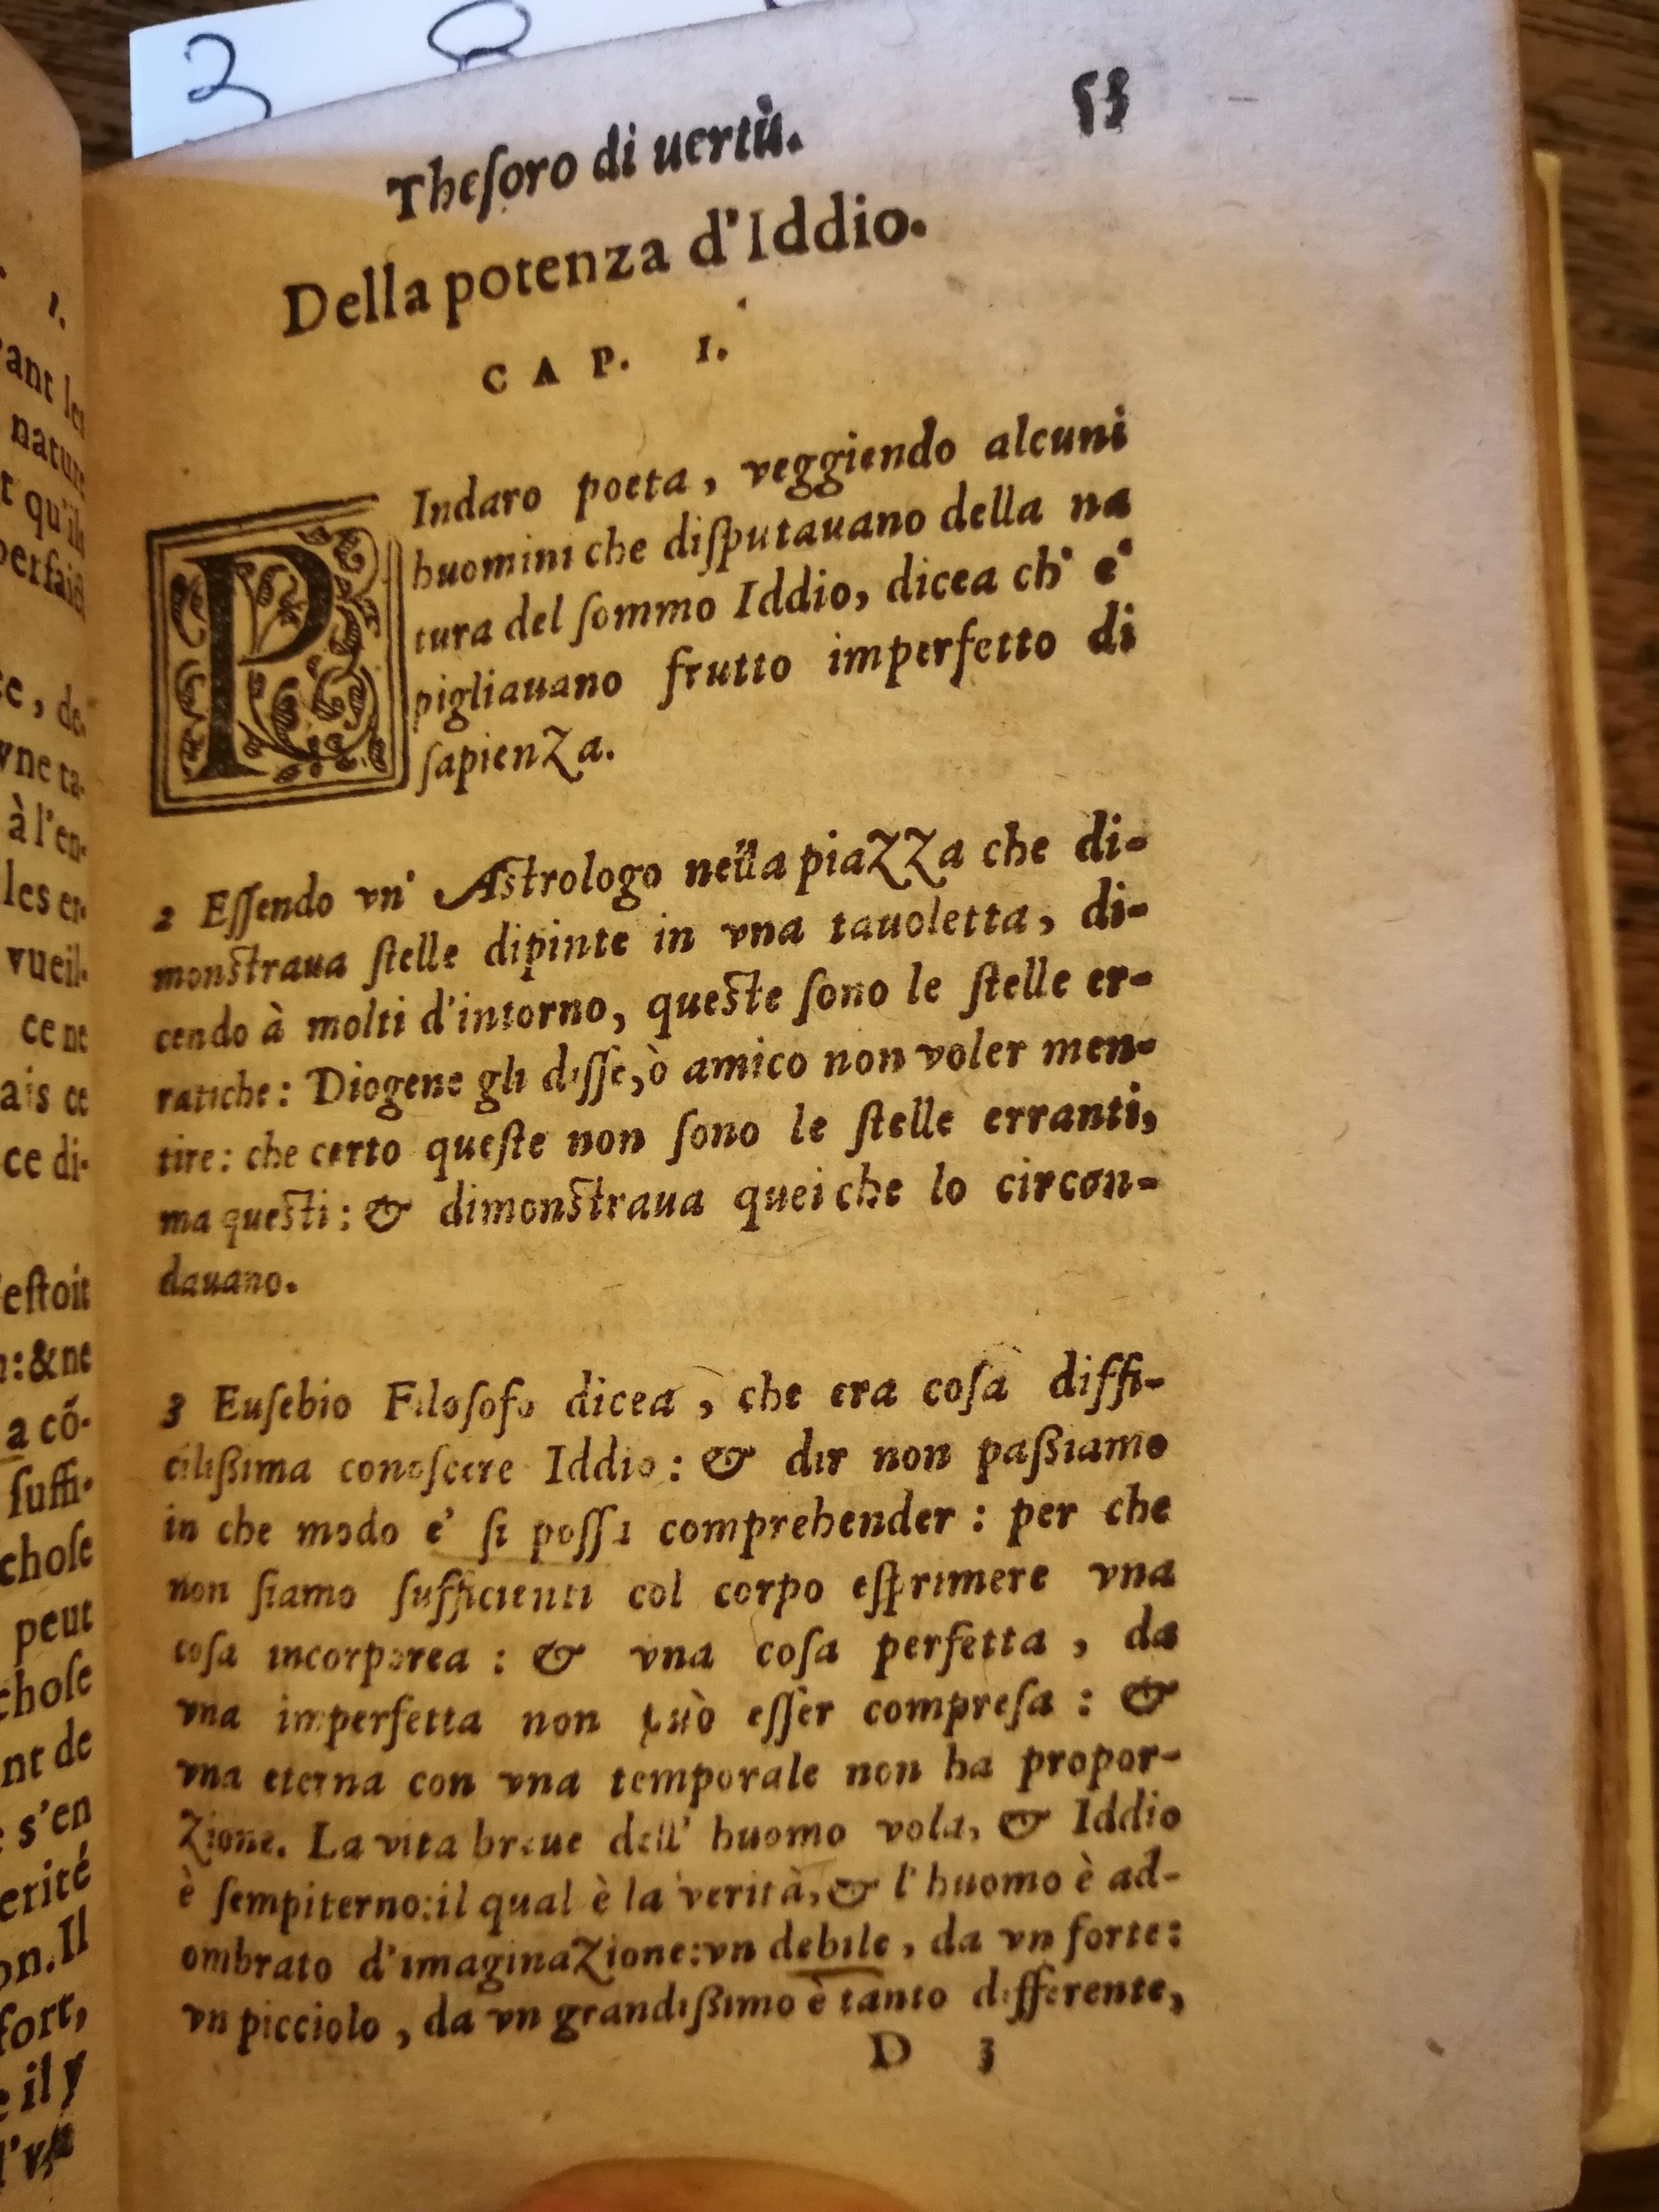 2
1.
ant les
nature
t qu'ils
perfaict
e, de
vne ta-
à l'en-
les er-
vueil-
ce ne
ais ce
ce di-
estoit
:&ne
a cõ-
suffi-
chose
peut
chose
nt de
s'en
erité
on. Il
fort,
il y
l'vn
Thesoro di uertù. 53
Della potenza d'Iddio.
CAP. I.
PIndaro poeta, veggiendo alcuni
huomini che disputauano della na
tura del sommo Iddio, dicea ch' e'
pigliauano frutto imperfetto di
sapienza.
2 Essendo vn' Astrologo nella piazza che di-
monstraua stelle dipinte in vna tauoletta, di-
cendo à molti d'intorno, queste sono le stelle er-
ratiche: Diogene gli disse, ò amico non voler men-
tire: che certo queste non sono le stelle erranti,
ma questi: & dimonstraua quei che lo circon-
dauano.
3 Eusebio Filosofo dicea, che era cosa diffi-
cilissima conoscere Iddio: & dir non passiamo
in che modo e' si possa comprehender: per che
non siamo sufficienti col corpo esprimere vna
cosa incorporea: & vna cosa perfetta, da
vna imperfetta non può esser compresa: &
vna eterna con vna temporale non ha propor-
zione. La vita breue dell' huomo vola, & Iddio
è sempiterno: il qual è la verità, & l'huomo è ad-
ombrato d'imaginazione: vn debile, da vn forte:
vn picciolo, da vn grandissimo è tanto differente,
D 3